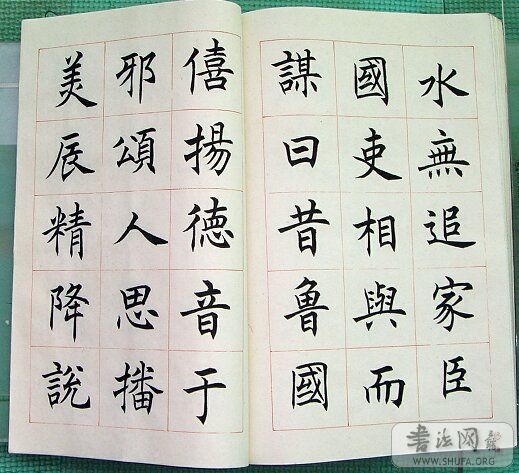 水無追家臣
國吏相與而
謀曰昔魯國
僖揚德音于
邪頌人思播
美辰精降說
書法网
WWW.SHUFA.ORG